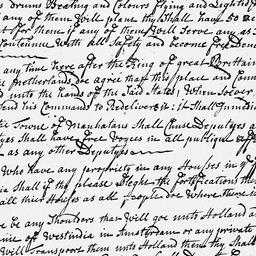 Drums Beating and Colours Flying and Lighted
any of them Will plant they Shall have 50 ac
for them if any of them Will Serve any as S
Continnue With all Safety and become free Deni
any time here after the King of great Brittain
the Netherland doe agree that this place and Coun
into the hands of the said States, When soever
Send his Commands to Redeliver it: it Shall Immedi
the Towne of Manhatans Shall Chuse Deputyes a
tyes Shall have free Voyces in all publique af
as any other Deputyes
Who have any propriety in any Houses in
Shall if they please Sleght the fortifications th
all their Houses as all people doe Where there is
be any Shouldiers that Will goe unto Holland a
of Westindia in Amsterdam or any private
Will Transport them unto Holland then they Shall